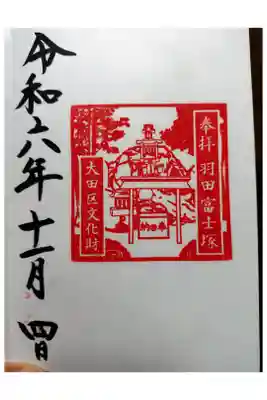 奉拝 羽田富士塚
大田区文化財
奉納
令和六年十一月 四日